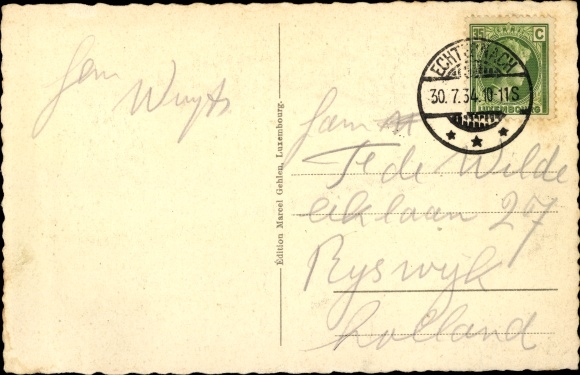 35 C
LUXEMBOURG
ECHTERNACH
30.7.34.10-11S
Fam
Te de Wilde
Eiklaan 27
Ryswyk
Holland
Fam
Wuyts
Édition Marcel Gehlen, Luxembourg.